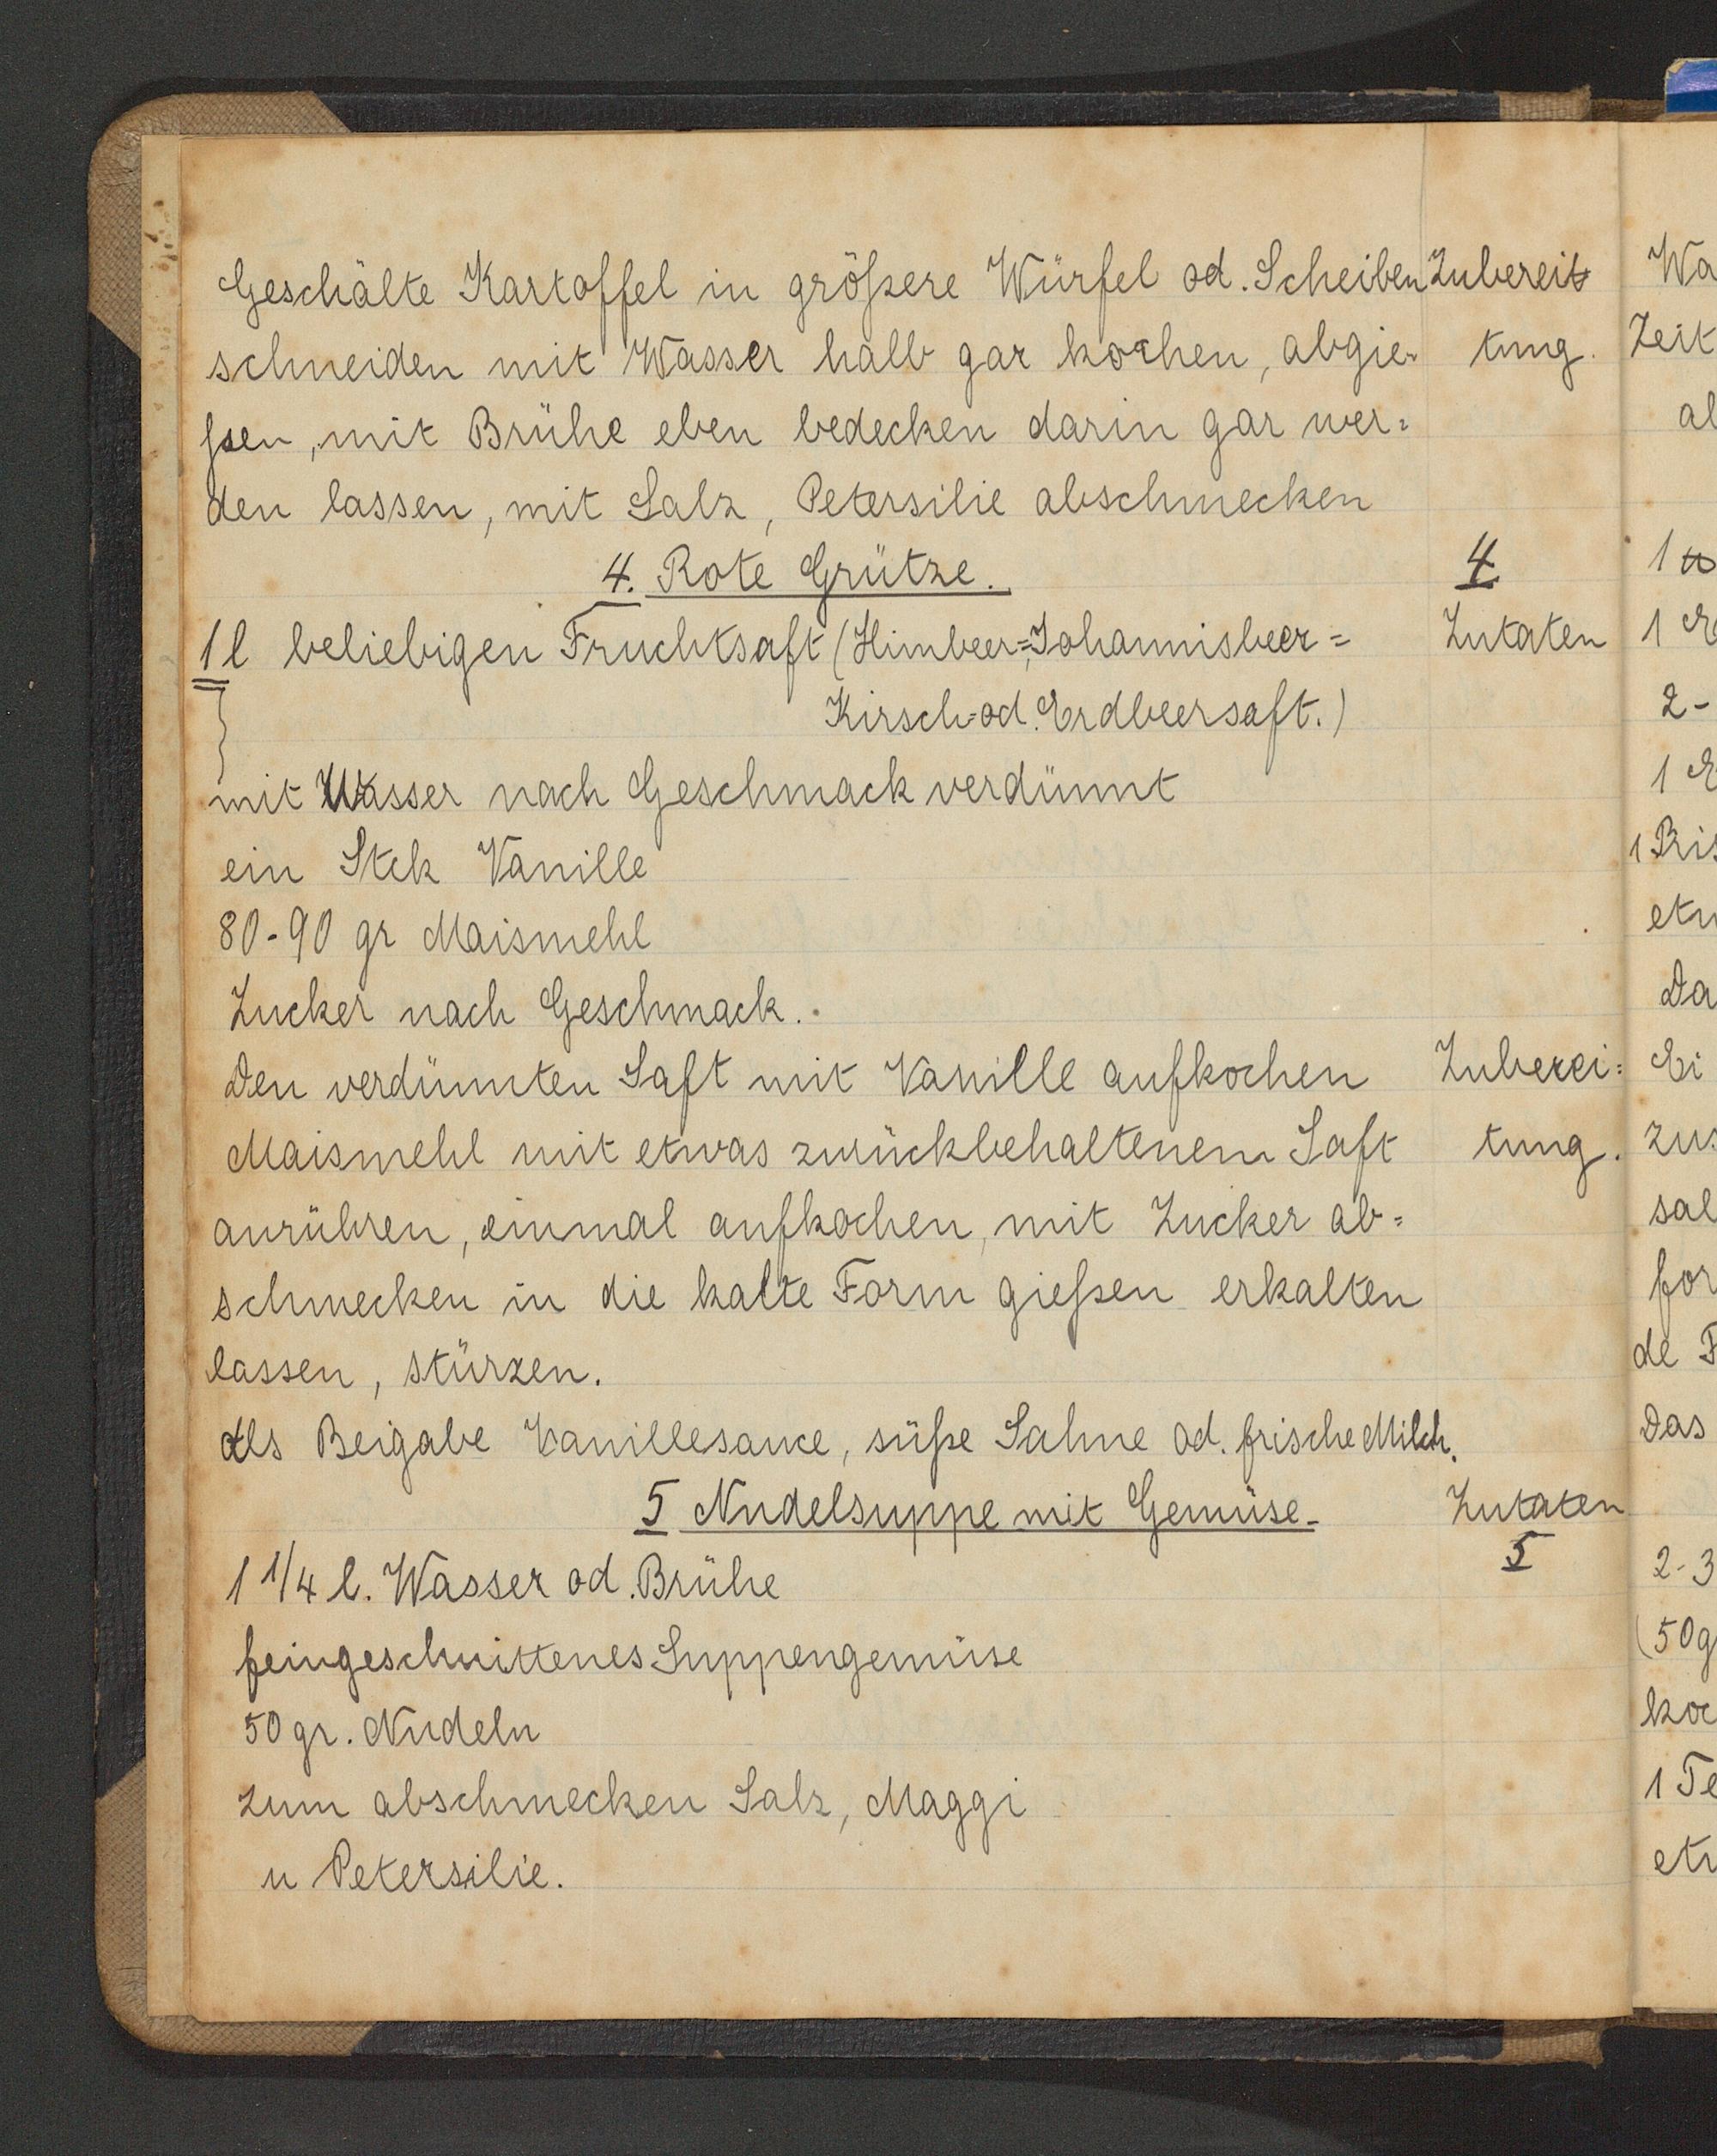 Geschälte Kartoffel in größere Würfel od. Scheiben Zubereit
schneiden mit Wasser halb gar kochen, abgie- tung.
ssen, mit Brühe eben bedecken darin gar wer=
den lassen, mit Salz, Petersilie abschmecken
4. Rote Grütze. 4
1 l beliebigen Fruchtsaft (Himbeer=, Johannisbeer= Zutaten
Kirsch- od. Erdbeersaft.)
mit Wasser nach Geschmack verdünnt
ein Stck Vanille
80-90 gr Maismehl
Zucker nach Geschmack.
Den verdünnten Saft mit Vanille aufkochen Zuberei=
Maismehl mit etwas zurückbehaltenem Saft tung.
anrühren, einmal aufkochen, mit Zucker ab=
schmecken in die kalte Form gießen erkalten
lassen, stürzen.
Als Beigabe Vanillesauce, süße Sahne od. frische Milch.
5 Nudelsuppe mit Gemüse- Zutaten
5
1 1/4 l. Wasser od. Brühe
feingeschnittenes Suppengemüse
50 gr. Nudeln
zum abschmecken Salz, Maggi
u Petersilie.
Wa
Zeit
al
1
1
2-
1
1 Pris
etw
Da
Ei
zus
sal
for
de F
Das
2-3
(50g
koc
1 Te
etw